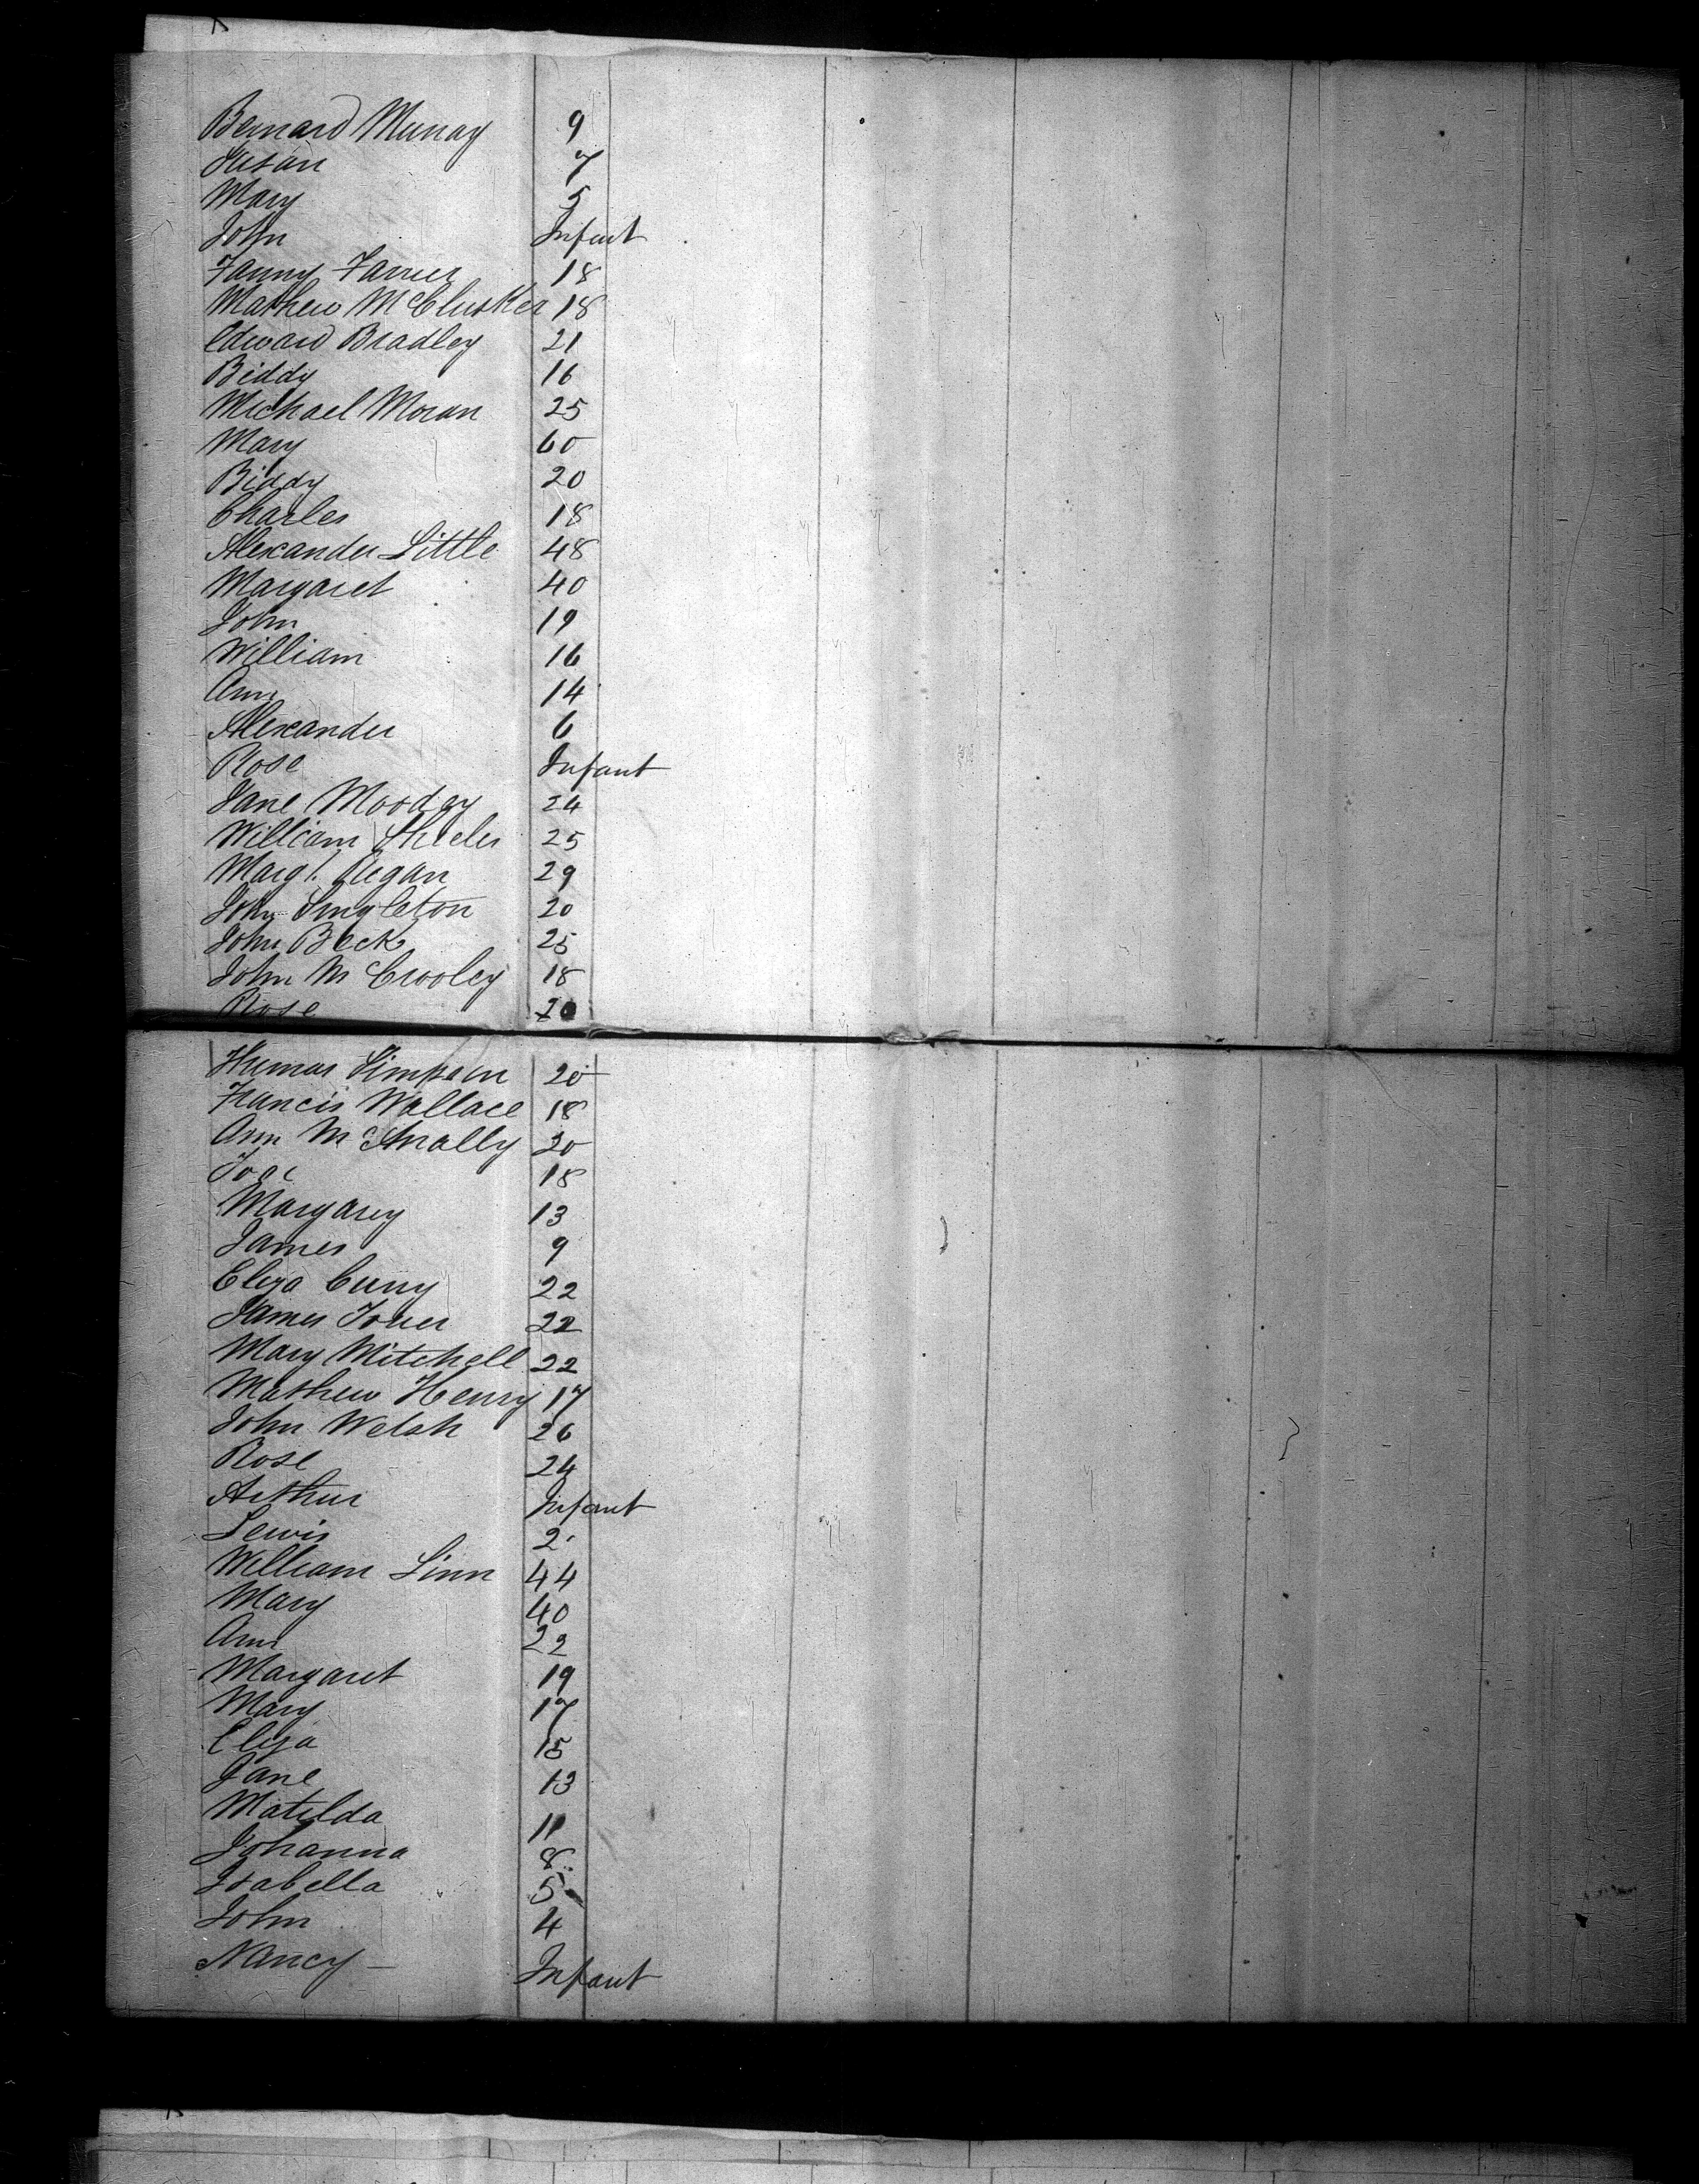 Bernard Murray 9
Susan 7
Mary 5
John Infant
Fanny 18
Mathew McClusker 18
Edward Bradley 21
Biddy 16
Michael Moran 25
Mary 60
Biddy 20
Charles 18
Alexander Little 48
Margaret 40
John 19
William 16
Ann 14
Alexander 6
Rose Infant
Jane Mooday 24
William 25
Margt. Regan 29
John Singleton 20
John Beck 25
John McCrooley 18
Rose 20
Thomas Simpson 20
Francis Wallace 18
Ann McAnally 20
18
Margarey 13
James 9
Eliza Curry 22
James 22
Mary Mitchell 22
Mathew Henry 17
John Welsh 26
Rose 24
Arthur Infant
Lewis 2
William Linn 44
Mary 40
Ann 22
Margaret 19
Mary 17
Eliza 15
Jane 13
Matilda 11
Johanna 8
Isabella 5
John 4
Nancy - Infant